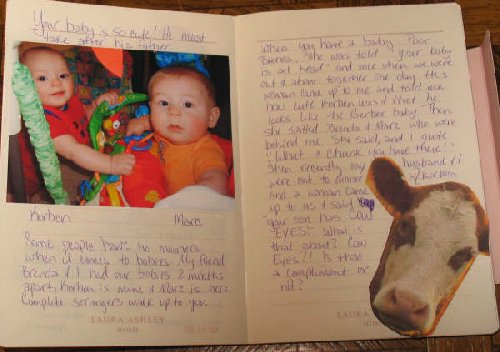 Your baby is so cute! He must
take after his father.
Korben Marc
Some people have no manners
when it comes to babies. My friend
Brenda & I had our babies 2 months
apart, Korben is mine & Marc is her's.
Complete strangers walk up to you
LAURA ASHLEY
HOME
when you have a baby. Poor
Brenda, she was told "your baby
is all head" and once when we were
out & about together one day this
woman came up to me and told me
how cute Korben was & that he
looks like the Gerber baby. Then
she spotted Brenda & Marc who were
behind me. She said, and I quote
"What a chunk you have there".
Then recently, my husband & I
were out to dinner w/ Korben
and a woman came
up to us & said
"your son has COW
EYES!" What is
that about? Cow
Eyes!! Is that
a compliment or
not?
LAURA